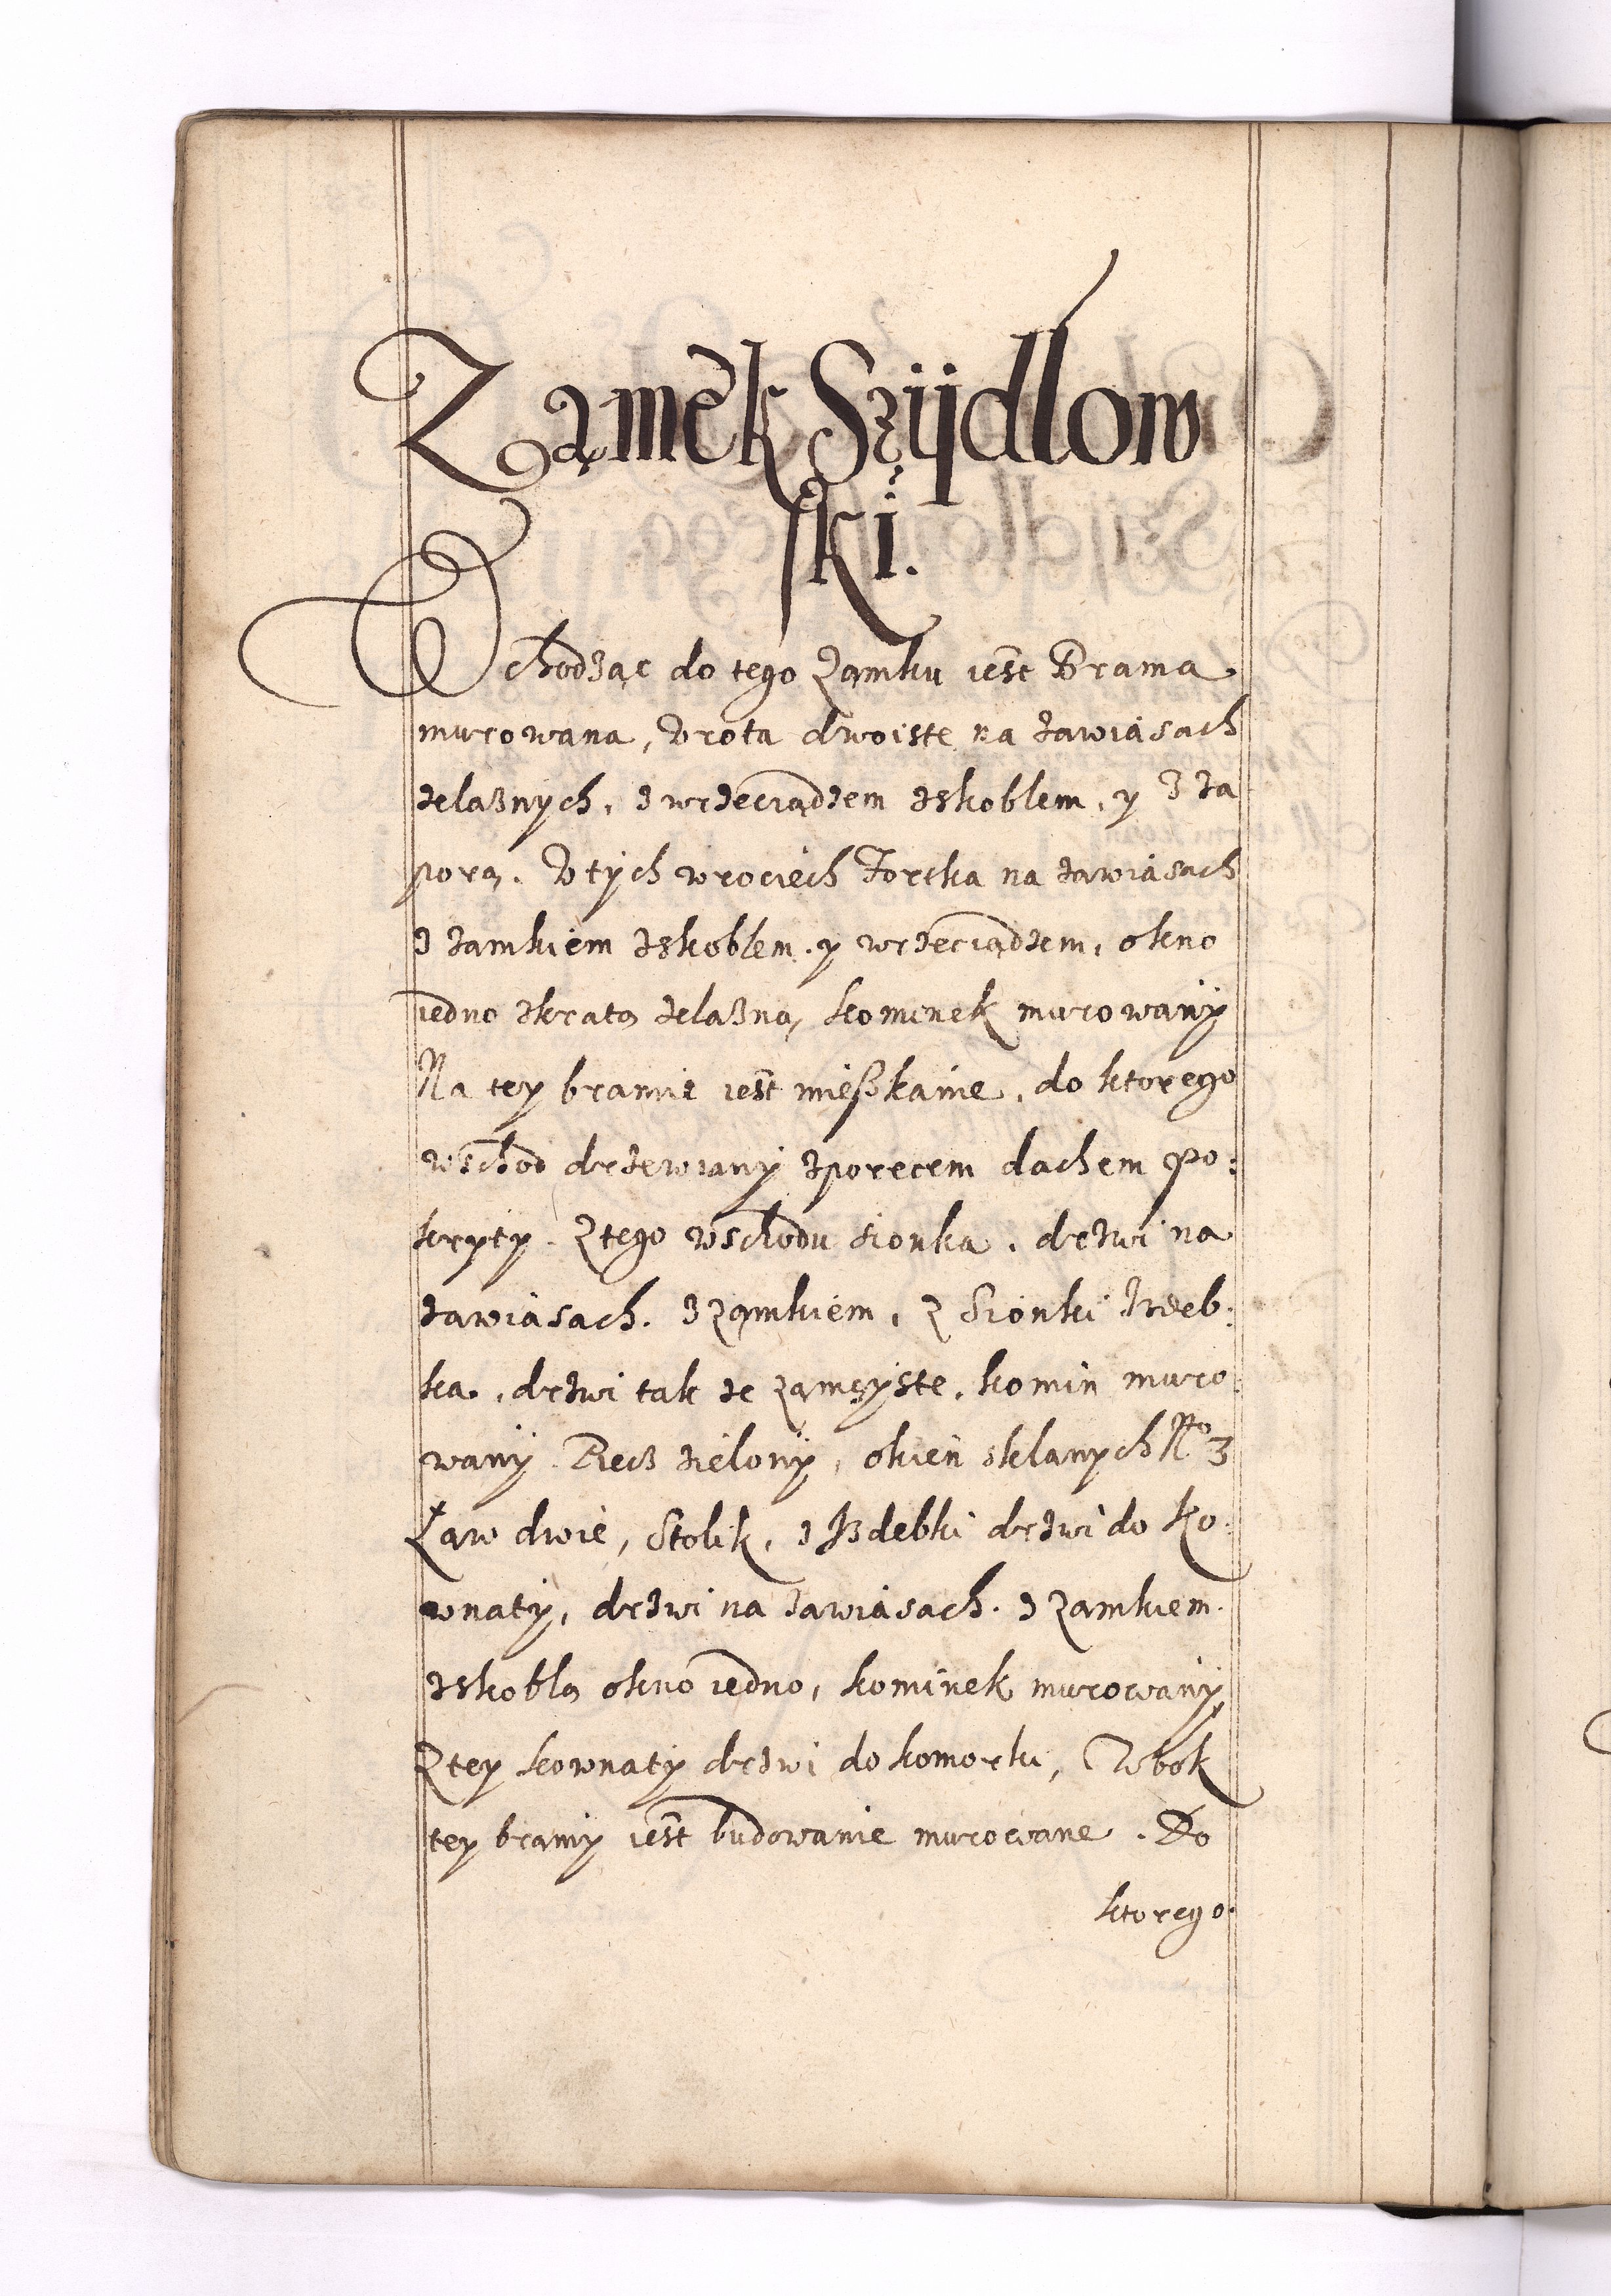 Zamek Szijdlow
ski.
Wchodząc do tego Zamku iest Brama
murowana, Wrota dwoiste na zawiasach
zelaznych, z wrzeciądzem zskoblem, y z za
porą. W tych wrociech Fortka na zawiasach
z zamkiem zskoblem y wrzeciądzem, okno
iedno zkratą zelazną, kominek murowany
Na tey bramie iest mieszkanie, do ktorego
wschod drzewiany zporecem dachem po:
kryty. Ztego wschodu sionka, drzwi na
zawiasach. z zamkiem, z Sionki Izdeb:
ka, drzwi tak ze zamczyste, komin muro:
wany. Piecz zielony, okien sklanych No 3
Ław dwie, Stolik, z Izdebki drzwi do Ko:
wnaty, drzwi na zawiasach. z zamkiem.
zskoblą okno iedno, kominek murowany
Ztey kownaty drzwi do komorki, Wbok
tey bramy iest budowanie murowane. Do
ktorego.